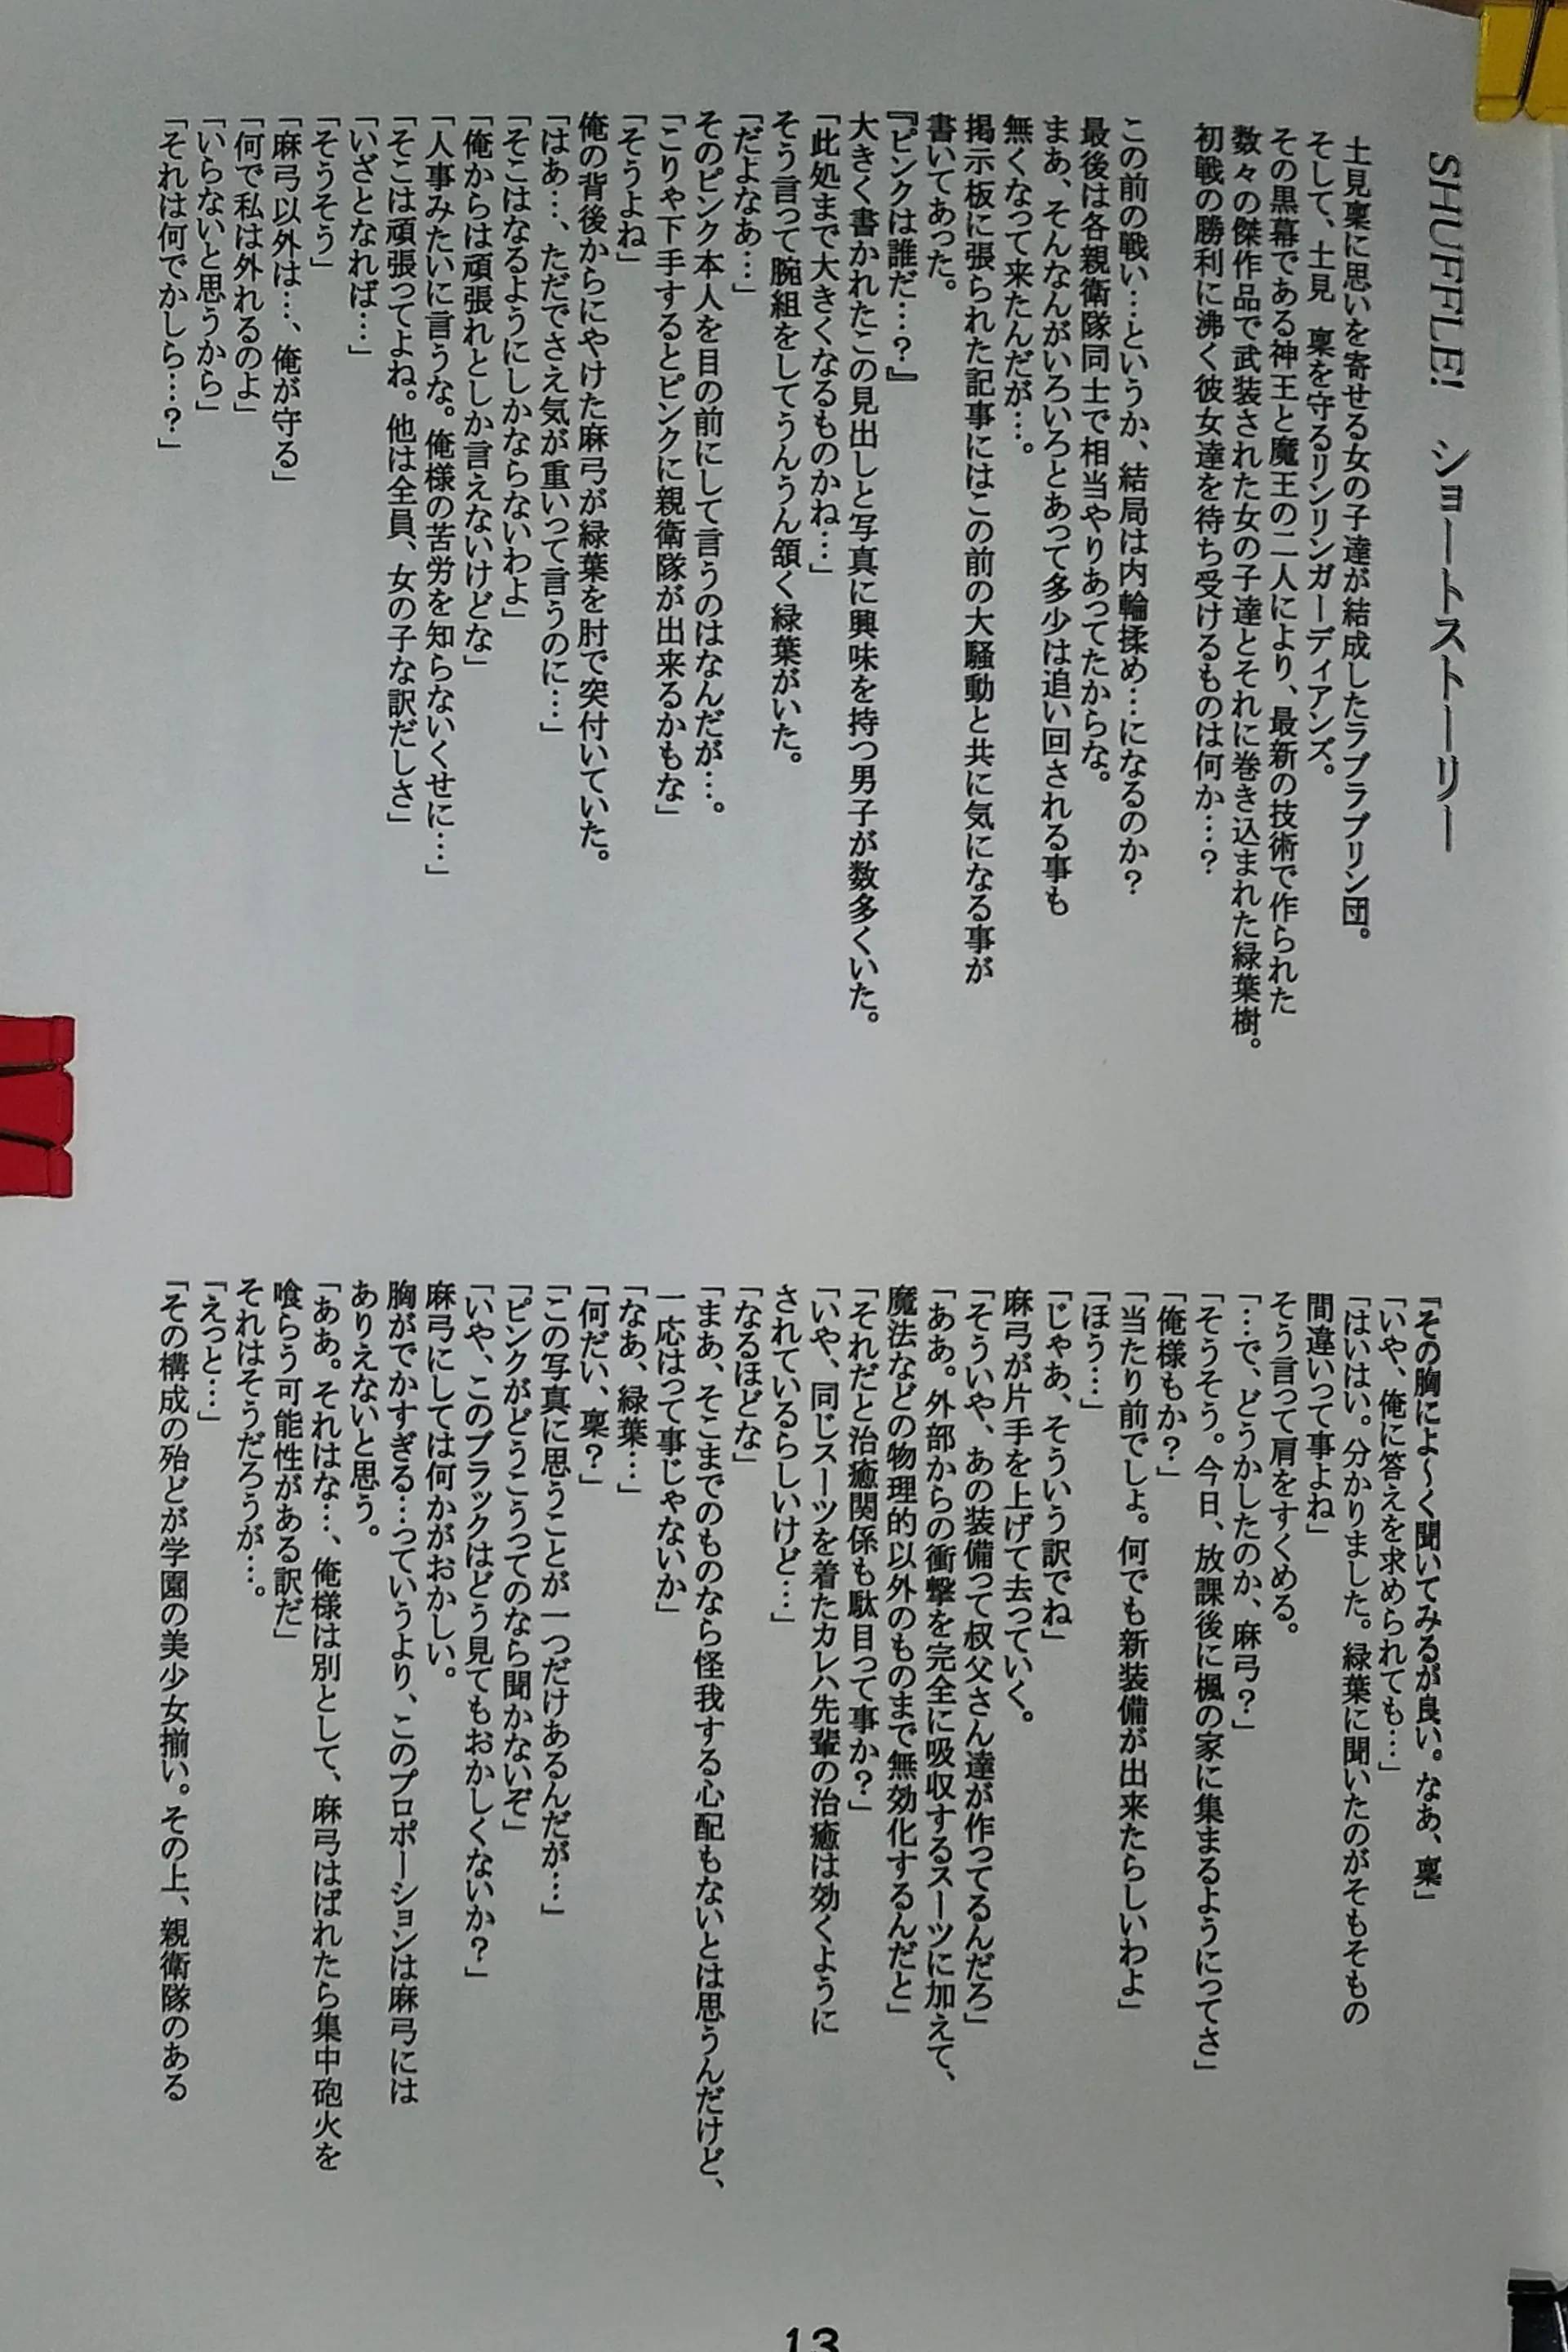 SHUFFLE!　ショートストーリー
土見稟に思いを寄せる女の子達が結成したラブラブリン団。
そして、土見　稟を守るリンリンガーディアンズ。
その黒幕である神王と魔王の二人により、最新の技術で作られた
数々の傑作品で武装された女の子達とそれに巻き込まれた緑葉樹。
初戦の勝利に沸く彼女達を待ち受けるものは何か…？
この前の戦い…というか、結局は内輪揉め…になるのか？
最後は各親衛隊同士で相当やりあってたからな。
まあ、そんなんがいろいろとあって多少は追い回される事も
無くなって来たんだが…。
掲示板に張られた記事にはこの前の大騒動と共に気になる事が
書いてあった。
『ピンクは誰だ…？』
大きく書かれたこの見出しと写真に興味を持つ男子が数多くいた。
「此処まで大きくなるものかね…」
そう言って腕組をしてうんうん頷く緑葉がいた。
「だよなあ…」
そのピンク本人を目の前にして言うのはなんだが…。
「こりゃ下手するとピンクに親衛隊が出来るかもな」
「そうよね」
俺の背後からにやけた麻弓が緑葉を肘で突付いていた。
「はあ…、ただでさえ気が重いって言うのに…」
「そこはなるようにしかならないわよ」
「俺からは頑張れとしか言えないけどな」
「人事みたいに言うな。俺様の苦労を知らないくせに…」
「そこは頑張ってよね。他は全員、女の子な訳だしさ」
「いざとなれば…」
「そうそう」
「麻弓以外は…、俺が守る」
「何で私は外れるのよ」
「いらないと思うから」
「それは何でかしら…？」
『その胸によ～く聞いてみるが良い。なあ、稟」
「いや、俺に答えを求められても…」
「はいはい。分かりました。緑葉に聞いたのがそもそもの
間違いって事よね」
そう言って肩をすくめる。
「…で、どうかしたのか、麻弓？」
「そうそう。今日、放課後に楓の家に集まるようにってさ」
「俺様もか？」
「当たり前でしょ。何でも新装備が出来たらしいわよ」
「ほう…」
「じゃあ、そういう訳でね」
麻弓が片手を上げて去っていく。
「そういや、あの装備って叔父さん達が作ってるんだろ」
「ああ。外部からの衝撃を完全に吸収するスーツに加えて、
魔法などの物理的以外のものまで無効化するんだと」
「それだと治癒関係も駄目って事か？」
「いや、同じスーツを着たカレハ先輩の治癒は効くように
されているらしいけど…」
「なるほどな」
「まあ、そこまでのものなら怪我する心配もないとは思うんだけど、
一応はって事じゃないか」
「なあ、緑葉…」
「何だい、稟？」
「この写真に思うことが一つだけあるんだが…」
「ピンクがどうこうってのなら聞かないぞ」
「いや、このブラックはどう見てもおかしくないか？」
麻弓にしては何かがおかしい。
胸がでかすぎる…っていうより、このプロポーションは麻弓には
ありえないと思う。
「ああ。それはな…、俺様は別として、麻弓はばれたら集中砲火を
喰らう可能性がある訳だ」
それはそうだろうが…。
「えっと…」
「その構成の殆どが学園の美少女揃い。その上、親衛隊のある
13